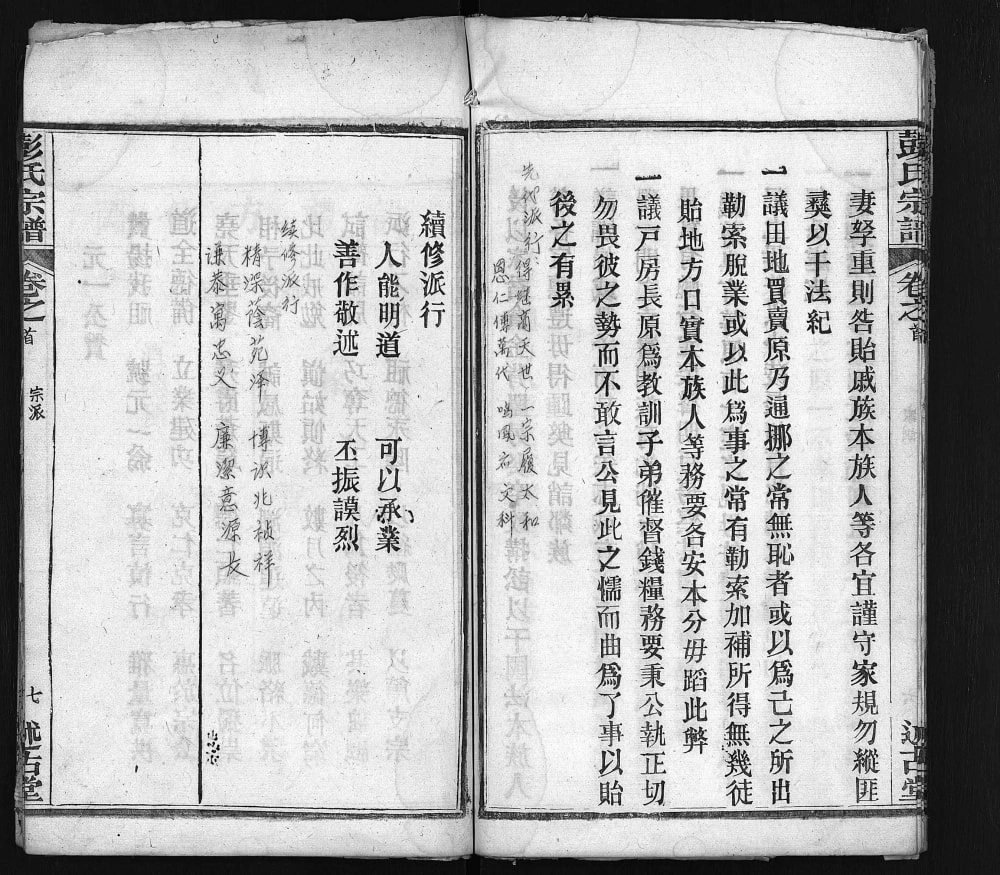 彭氏宗譜
卷之首
述古堂
妻孥重則咎貽戚族本族人等各宜謹守家規勿縱匪
彛以干法紀
一議田地買賣原乃通挪之常無恥者或以爲己之所出
勒索脫業或以此爲事之常有勒索加補所得無幾徒
貽地方口實本族人等務要各安本分毋蹈此弊
一議戸房長原爲教訓子弟催督錢糧務要秉公執正切
勿畏彼之勢而不敢言公見此之懦而曲爲了事以貽
後之有累
先代派行：得冠高天世 一宗履太和
恩仁傳萬代 鳴風啟文科
續修派行
人能明道 可以承業
善作敬述 丕振謨烈
续修派行
精深蔭苑泽 博识兆祯祥
谦恭寓忠义 廉潔意源长
彭氏宗譜
卷之首
宗派
七
述古堂